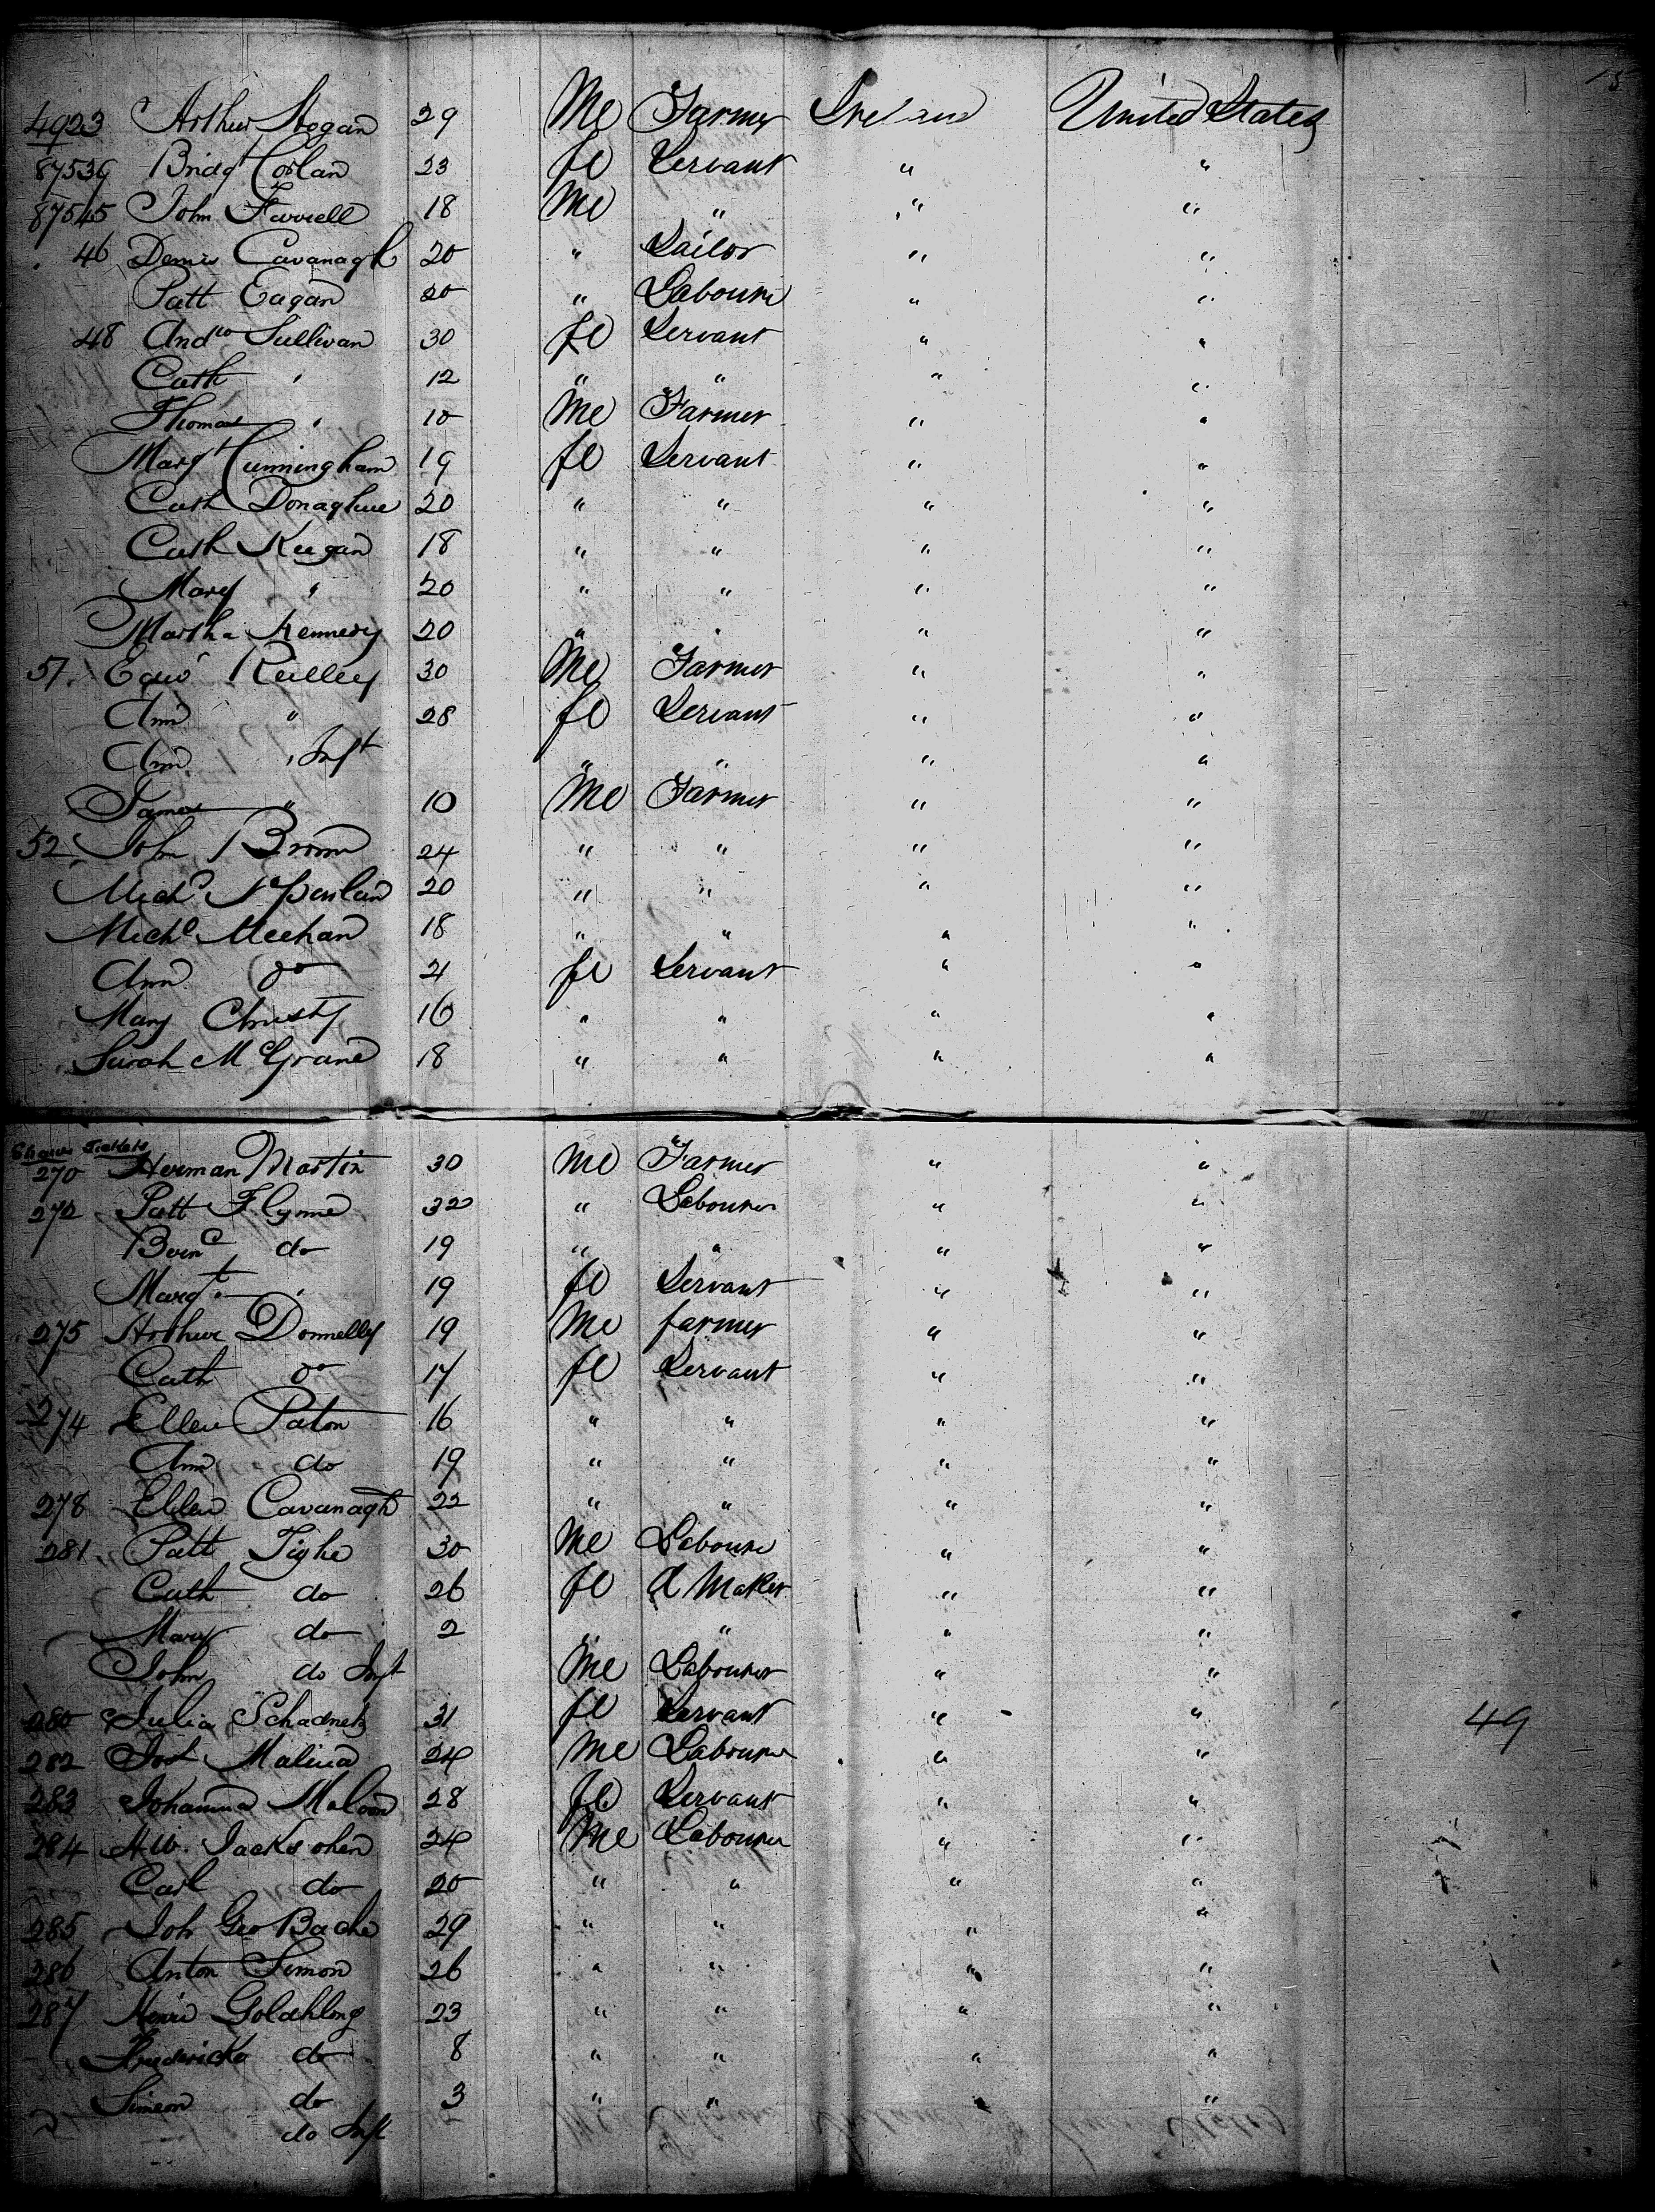 15
4923 Arthur Hogan 29 Me Farmer Ireland United States
87539 Bridgt Conlan 23 fe Servant " "
87545 John Farrell 18 Me " " "
46 Denis Cavanagh 20 " Sailor " "
Patt Eagan 20 " Labourer " "
48 Sullivan 30 fe Servant " "
Cath " 12 " " " "
Thomas " 10 Me Farmer " "
Margt Cunningham 19 fe Servant " "
Cath Donaghue 20 " " " "
Cath Keegan 18 " " " "
Mary " 20 " " " "
Martha Kennedy 20 " " " "
51 Edwd Reilley 30 Me Farmer " "
Ann " 28 fe Servant " "
Ann " Inft " " " "
James " 10 Me Farmer " "
52 John 24 " " " "
Michl 20 " " " "
Michl Meehan 18 " " " "
Ann do 21 fe Servant " "
Mary Christy 16 " " " "
Sarah McGrane 18 " " " "
Tickets
270 Herman Martin 30 Me Farmer " "
272 Patt Flynne 32 " Labourer " "
do 19 " " " "
Margt " 19 fe Servant " "
275 Arthur Donnelly 19 Me farmer " "
Cath do 17 fe Servant " "
274 Ellen Paton 16 " " " "
Ann do 19 " " " "
278 Ellen Cavanagh 22 " " " "
281 Patt Tighe 30 Me Labourer " "
Cath do 26 fe d Maker " "
Mary do 2 " " " "
John do Inft Me Labourer " "
280 Julia Schadnek 31 fe Servant " " 49
282 Malina 24 Me Labourer " "
283 Johanna 28 fe Servant " "
284 HW. Jacksohen 24 Me Labourer " "
Carl do 20 " " " "
285 Joh Geo Bache 29 " " " "
286 Anton Simon 26 " " " "
287 23 " " " "
Fredericka do 8 " " " "
Simeon do 3 " " " "
do Inft